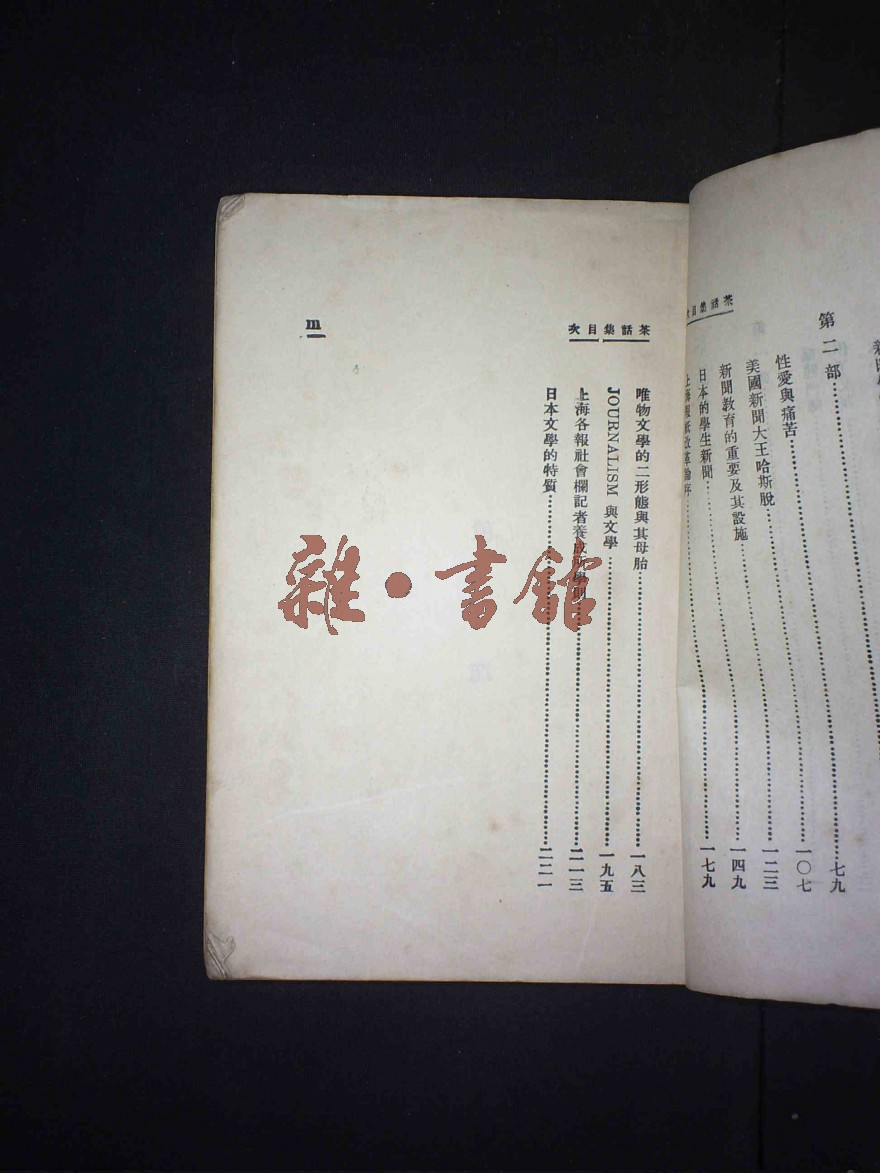 茶話集目次
第二部
性愛與痛苦……七九
美國新聞大王哈斯脫……一〇七
新聞教育的重要及其設施……一二三
日本的學生新聞……一四九
上海報紙改革論序……一七九
茶話集目次
唯物文學的二形態與其母胎……一八三
JOURNALISM 與文學……一九五
上海各報社會欄記者養成所學則……二一三
日本文學的特質……二二一
m
雜·書館